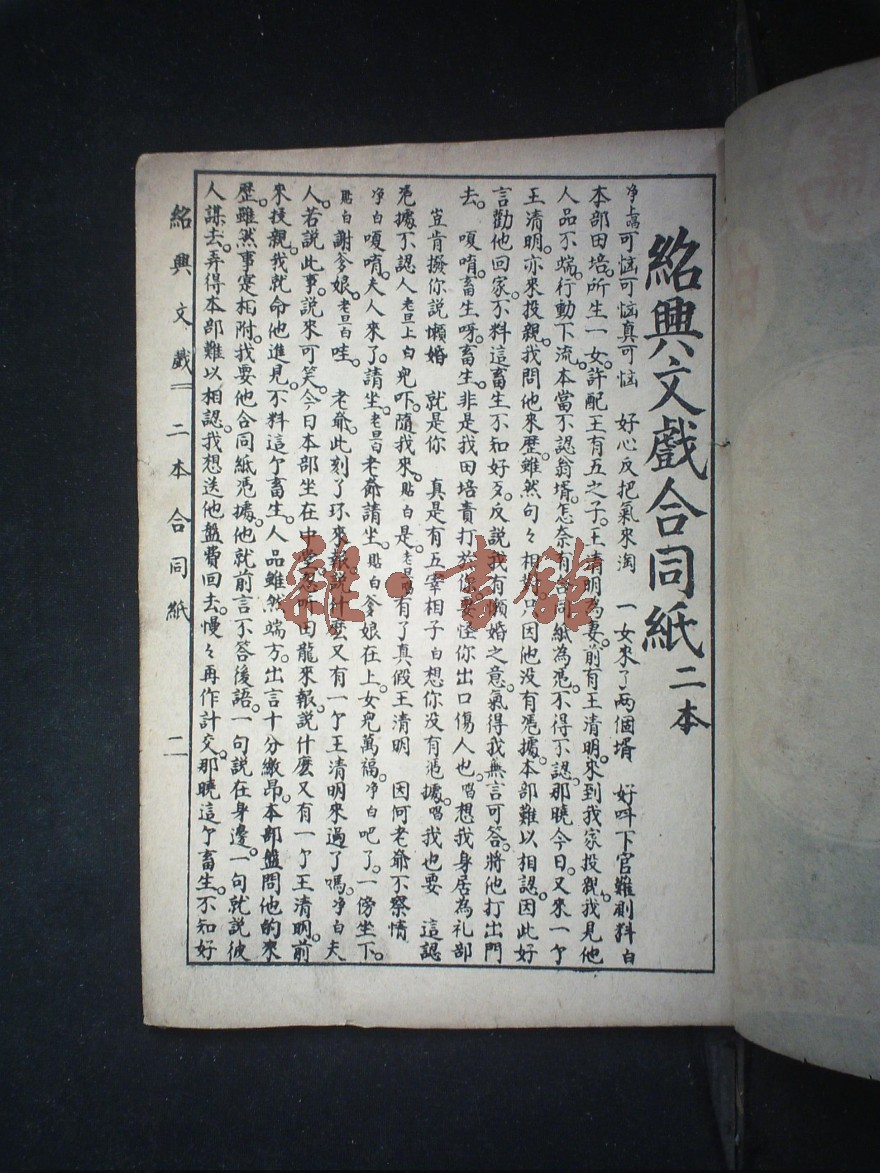 紹興文戲合同紙二本
净上唱可恼可恼真可恼 好心反把氣來淘 一女來了两個壻 好呌下官難剖料白
本部田培。所生一女。許配王有五之子。王清明為妻。前有王清明。來到我家投親。我見他
人品不端。行動下流。本當不認翁壻。怎奈有合同紙為凴。不得不認。那曉今日。又來一个
王清明。亦來投親。我問他來歷。雖然句々相符。只因他没有凴據。本部難以相認。因此好
言勸他回家。不料這畜生不知好歹。反説我有懶婚之意。氣得我無言可答。將他打出門
去。嗄唷。畜生呀。畜生。非是我田培責打於你。要怪你出口傷人也。唱想我身居為礼部
豈肯撥你説懶婚 就是你 真是有五宰相子白想你没有凴據。唱我也要 這認
凴據不認人老旦上白兒吓。隨我來。貼白是。老旦唱有了真假王清明 因何老爺不察情
净白嗄唷。夫人來了。請坐。老旦白老爺請坐。貼白爹娘在上。女兒萬福。净白吧了。一傍坐下。
貼白謝爹娘。老旦白哇。 老爺。此刻了环來報。説什麽又有一个王清明來過了嗎。净白夫
人。若説此事。説來可笑。今日本部坐在中堂。忽听田龍來報。説什麽又有一个王清明。前
來投親。我就命他進見。不料這个畜生。人品雖然端方。出言十分繳昂。本部盤問他的來
歷。雖然事寔相附。我要他合同紙凴據。他就前言不答後語。一句説在身邊。一句就説彼
人謀去。弄得本部難以相認。我想送他盤費回去。慢々再作計交。那曉這个畜生。不知好
紹興文戲 二本合同紙 二
雜·書館